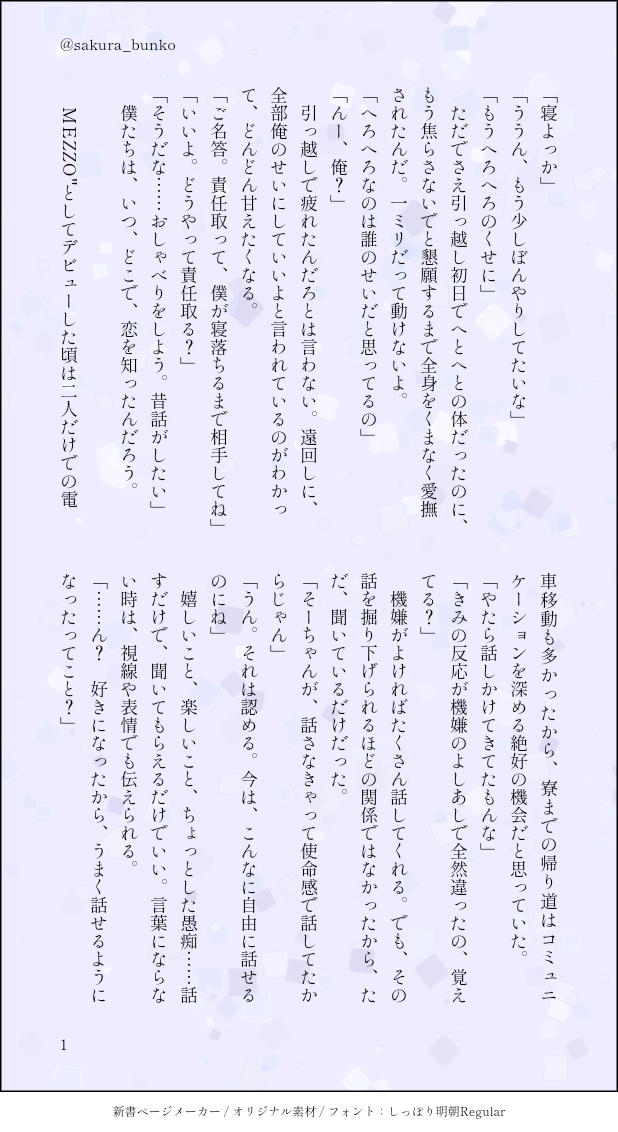 @sakura_bunko
「寝よっか」
「ううん、もう少しぼんやりしてたいな」
「もうへろへろのくせに」
ただでさえ引っ越し初日でへとへとの体だったのに、
もう焦らさないでと懇願するまで全身をくまなく愛撫
されたんだ。一ミリだって動けないよ。
「へろへろなのは誰のせいだと思ってるの」
「んー、俺？」
引っ越しで疲れたんだろとは言わない。遠回しに、
全部俺のせいにしていいよと言われているのがわかっ
て、どんどん甘えたくなる。
「ご名答。責任取って、僕が寝落ちるまで相手してね」
「いいよ。どうやって責任取る？」
「そうだな……おしゃべりをしよう。昔話がしたい」
僕たちは、いつ、どこで、恋を知ったんだろう。
MEZZO"としてデビューした頃は二人だけでの電
車移動も多かったから、寮までの帰り道はコミュニ
ケーションを深める絶好の機会だと思っていた。
「やたら話しかけてきてたもんな」
「きみの反応が機嫌のよしあしで全然違ったの、覚え
てる？」
機嫌がよければたくさん話してくれる。でも、その
話を掘り下げられるほどの関係ではなかったから、た
だ、聞いているだけだった。
「そーちゃんが、話さなきゃって使命感で話してたか
らじゃん」
「うん。それは認める。今は、こんなに自由に話せる
のにね」
嬉しいこと、楽しいこと、ちょっとした愚痴……話
すだけで、聞いてもらえるだけでいい。言葉にならな
い時は、視線や表情でも伝えられる。
「……ん？　好きになったから、うまく話せるように
なったってこと？」
1
新書ページメーカー / オリジナル素材 / フォント：しっぽり明朝Regular